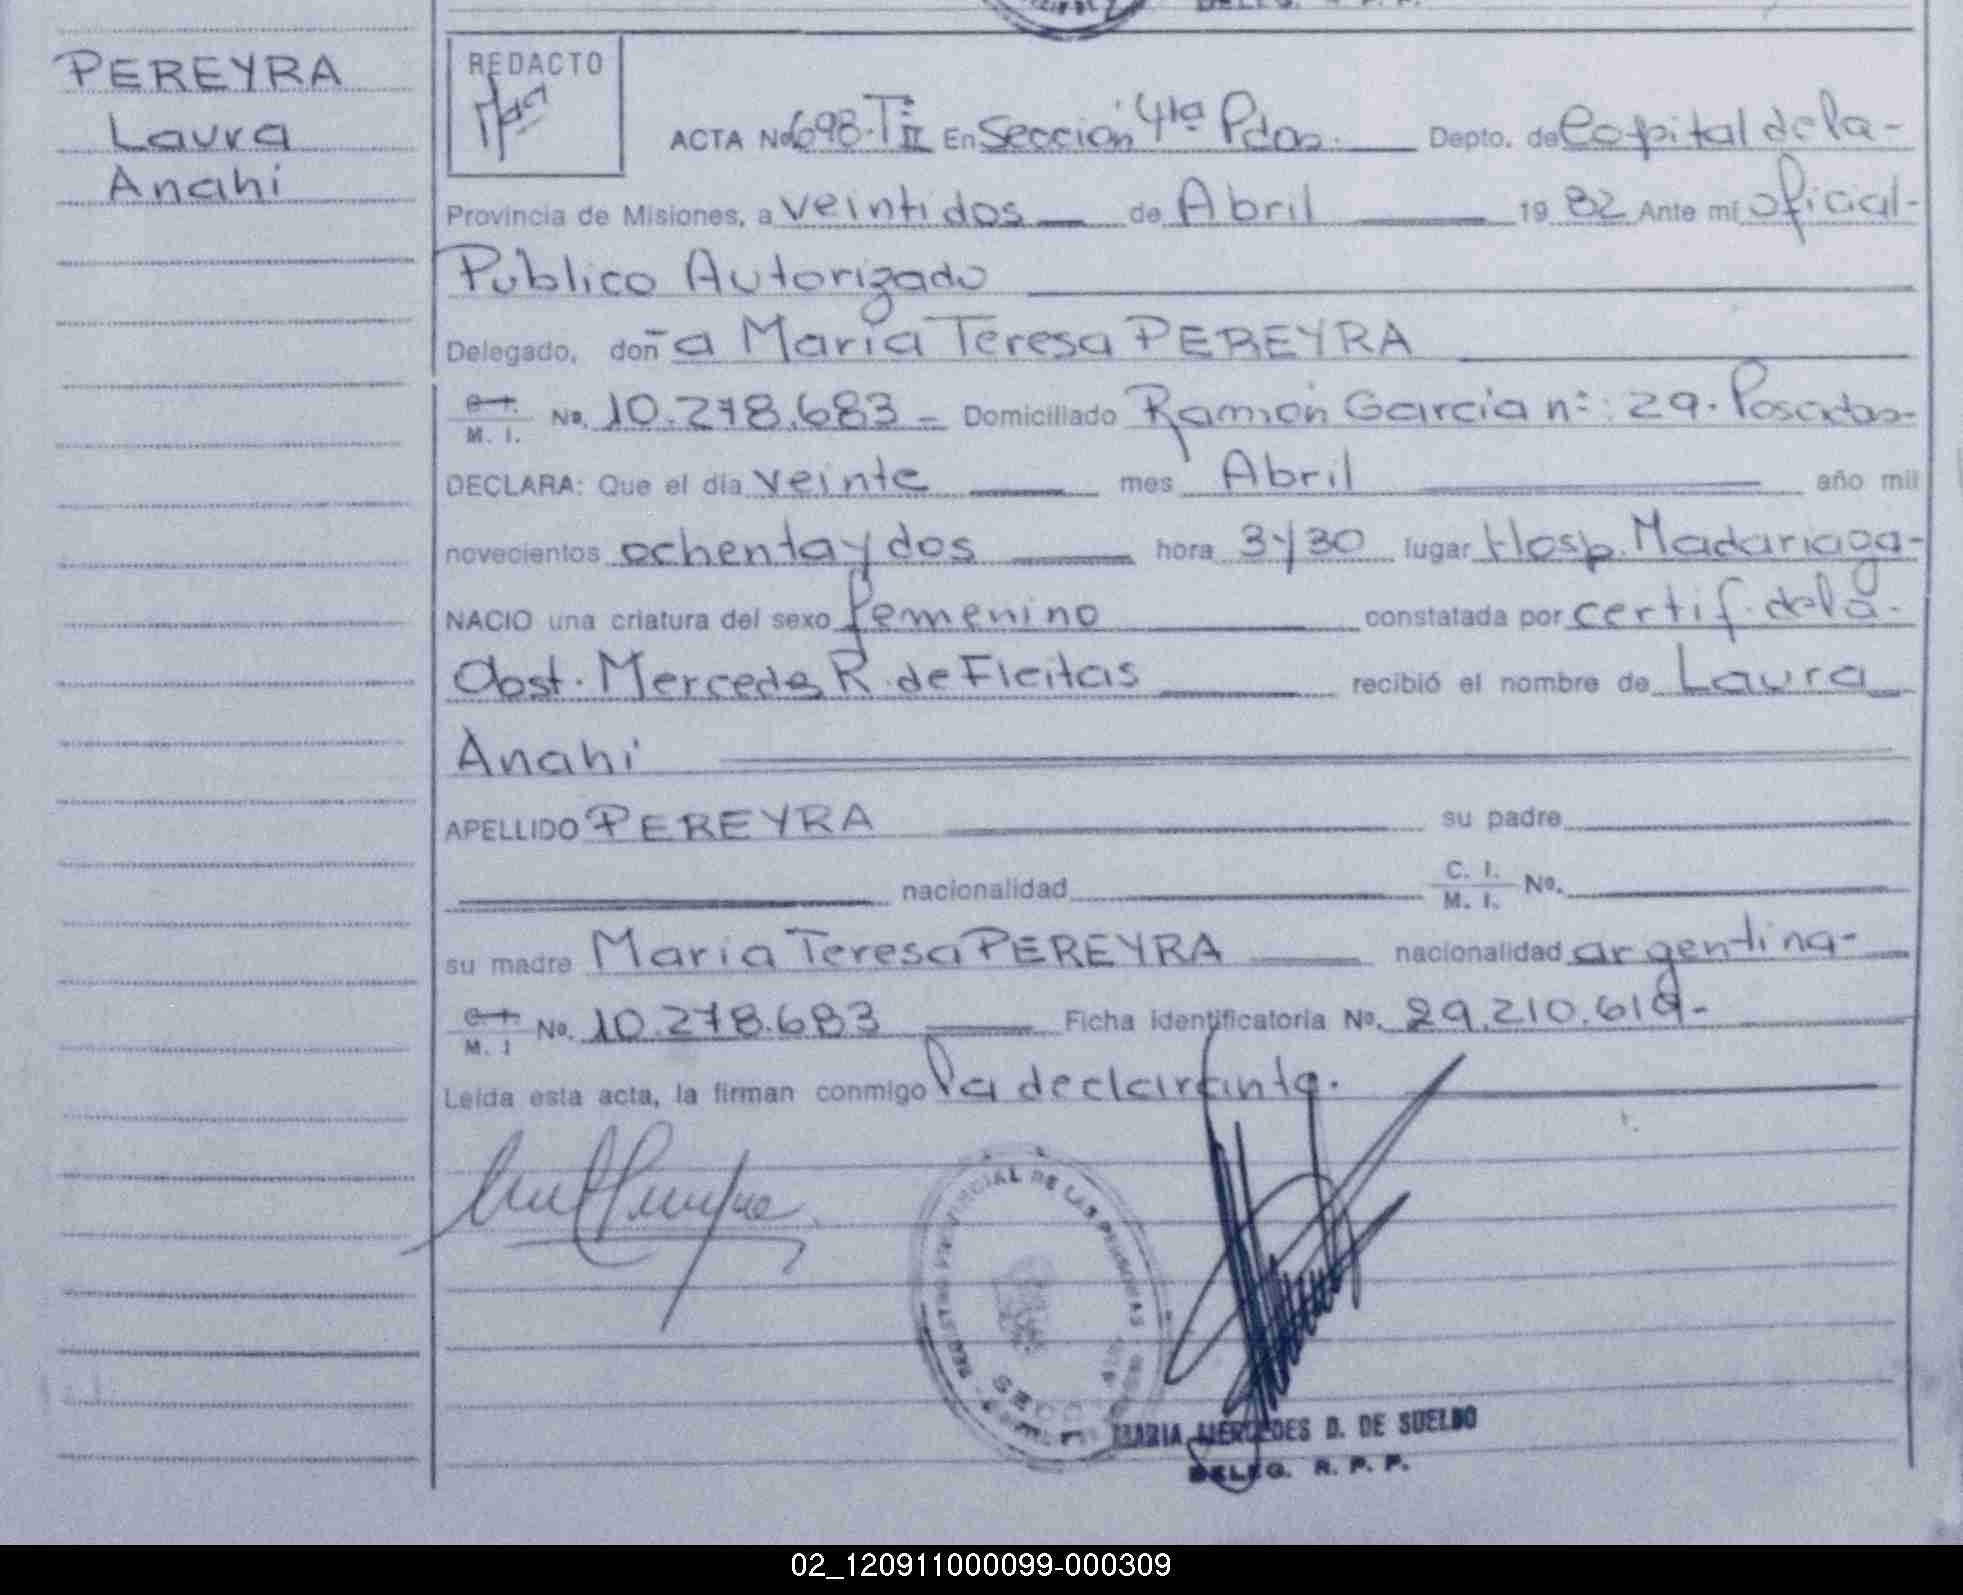 DELEG. R. P. P.
PEREYRA
Laura
Anahi
REDACTO
ACTA No 698-T II En Sección 4ta Pdas. Depto. de Capital de la-
Provincia de Misiones, a veintidos de Abril 19 82 Ante mí oficial-
Público Autorizado
Delegado, doña María Teresa PEREYRA
C. I.
M. I. No. 10.278.683- Domiciliado Ramón García nº: 29. Posadas-
DECLARA: Que el día veinte mes Abril año mil
novecientos ochenta y dos hora 3y30 lugar Hosp. Madariaga-
NACIO una criatura del sexo femenino constatada por certif. de la-
Obst. Mercedes R. de Fleitas recibió el nombre de Laura
Anahí
APELLIDO PEREYRA su padre
nacionalidad C. I.
M. I. No.
su madre María Teresa PEREYRA nacionalidad argentina-
C. I.
M. I No. 10.278.683 Ficha identificatoria No. 29.210.619-
Leída esta acta, la firman conmigo la declarante.
REGISTRO PROVINCIAL DE LAS PERSONAS
MARIA MERCEDES D. DE SUELDO
DELEG. R. P. P.
02_120911000099-000309